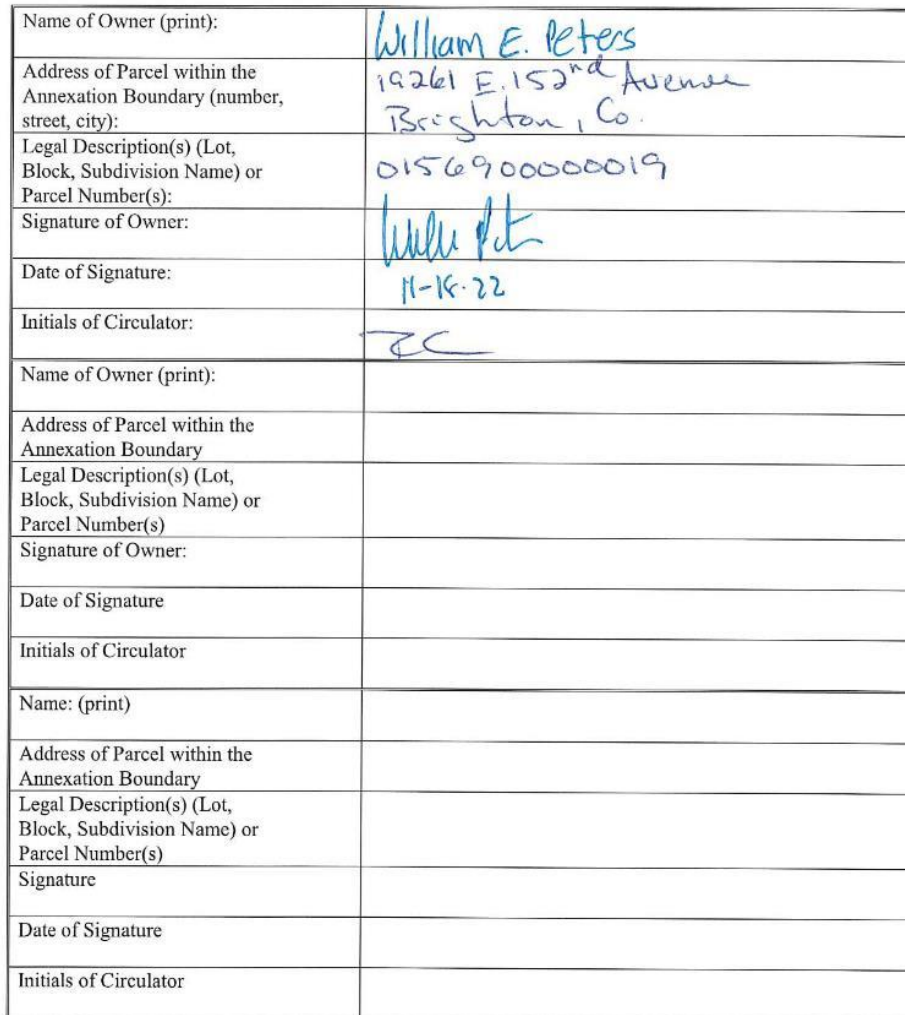 Name of Owner (print):
William E. Peters
Address of Parcel within the
Annexation Boundary (number,
street, city):
19261 E. 152nd Avenue
Brighton, Co.
Legal Description(s) (Lot,
Block, Subdivision Name) or
Parcel Number(s):
0156900000019
Signature of Owner:
Date of Signature:
11-18-22
Initials of Circulator:
Name of Owner (print):
Address of Parcel within the
Annexation Boundary
Legal Description(s) (Lot,
Block, Subdivision Name) or
Parcel Number(s)
Signature of Owner:
Date of Signature
Initials of Circulator
Name: (print)
Address of Parcel within the
Annexation Boundary
Legal Description(s) (Lot,
Block, Subdivision Name) or
Parcel Number(s)
Signature
Date of Signature
Initials of Circulator